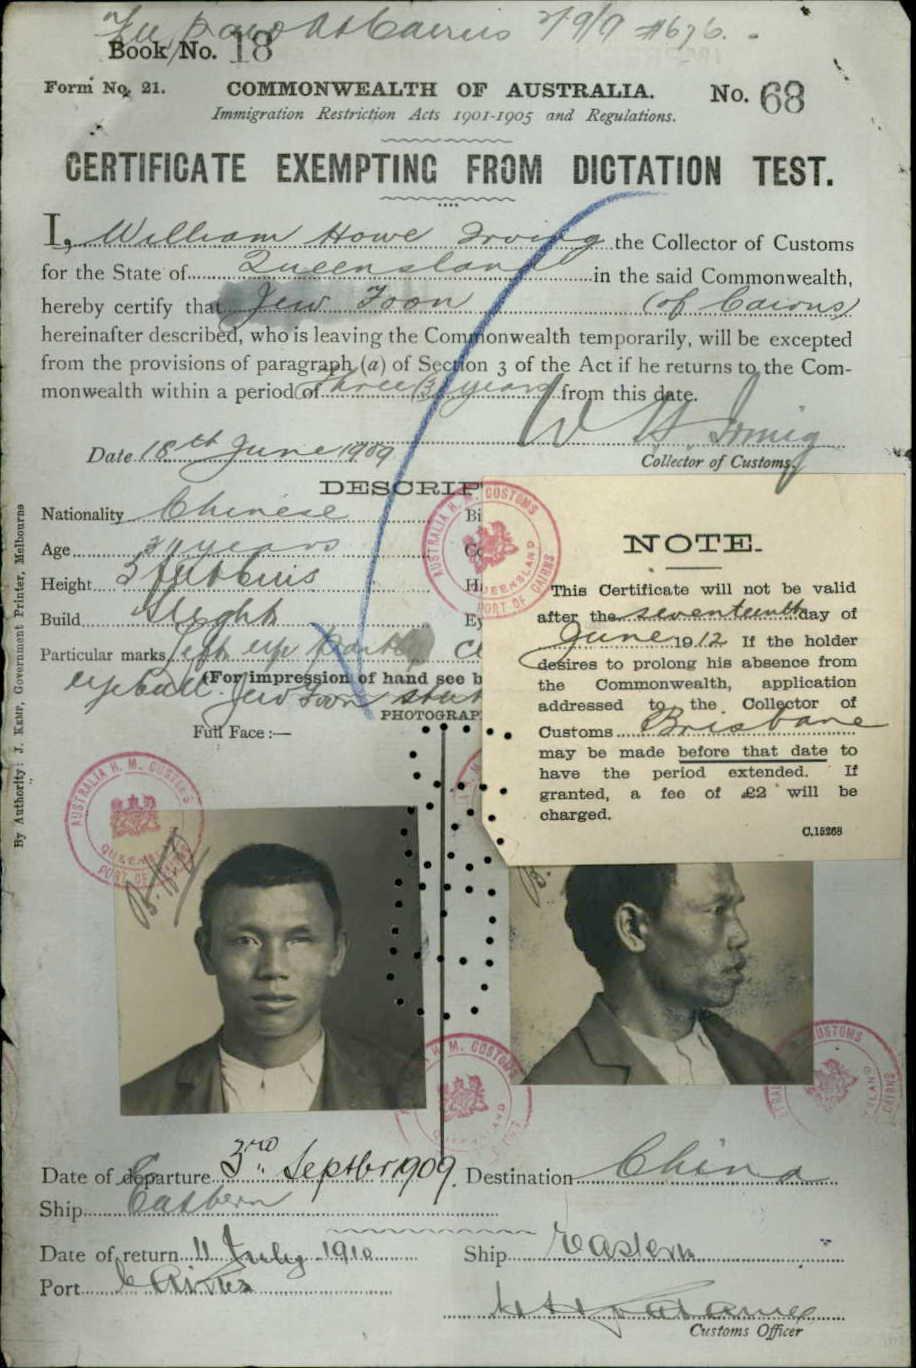 Fee paid at Cairns 2/9/9 #676.
Book No. 18
Form No. 21. COMMONWEALTH OF AUSTRALIA. No. 63
Immigration Restriction Acts 1901-1905 and Regulations.
CERTIFICATE EXEMPTING FROM DICTATION TEST.
I, William Howe Irving the Collector of Customs
for the State of Queensland in the said Commonwealth,
hereby certify that Jew Foon (of Cairns)
hereinafter described, who is leaving the Commonwealth temporarily, will be excepted
from the provisions of paragraph (a) of Section 3 of the Act if he returns to the Com-
monwealth within a period of Three (3) years from this date.
W H Irving
Date 18th June 1909
Collector of Customs.
DESCRIP
Nationality Chinese Bi
Age years
Height 5
Build Slight Ey
Particular marks Left eye
eyeball. (For impression of hand see b
Jew Foon
PHOTOGRAP
Full Face:—
NOTE.
This Certificate will not be valid
after the seventeenth day of
June 1912 If the holder
desires to prolong his absence from
the Commonwealth, application
addressed to the Collector of
Customs Brisbane
may be made before that date to
have the period extended. If
granted, a fee of £2 will be
charged.
C.15268
AUSTRALIA H. M. CUSTOMS
QUEENSLAND
PORT OF CAIRNS
AUSTRALIA H. M. CUSTOMS
QUEENSLAND
PORT OF
M. CUSTOMS
CUSTOMS
CAIRNS
By Authority: J. KEMP, Government Printer, Melbourne
Date of departure 3rd Septber 1909. Destination China
Ship Eastern
Date of return 11 July 1910 Ship Eastern
Port Cairns
Customs Officer